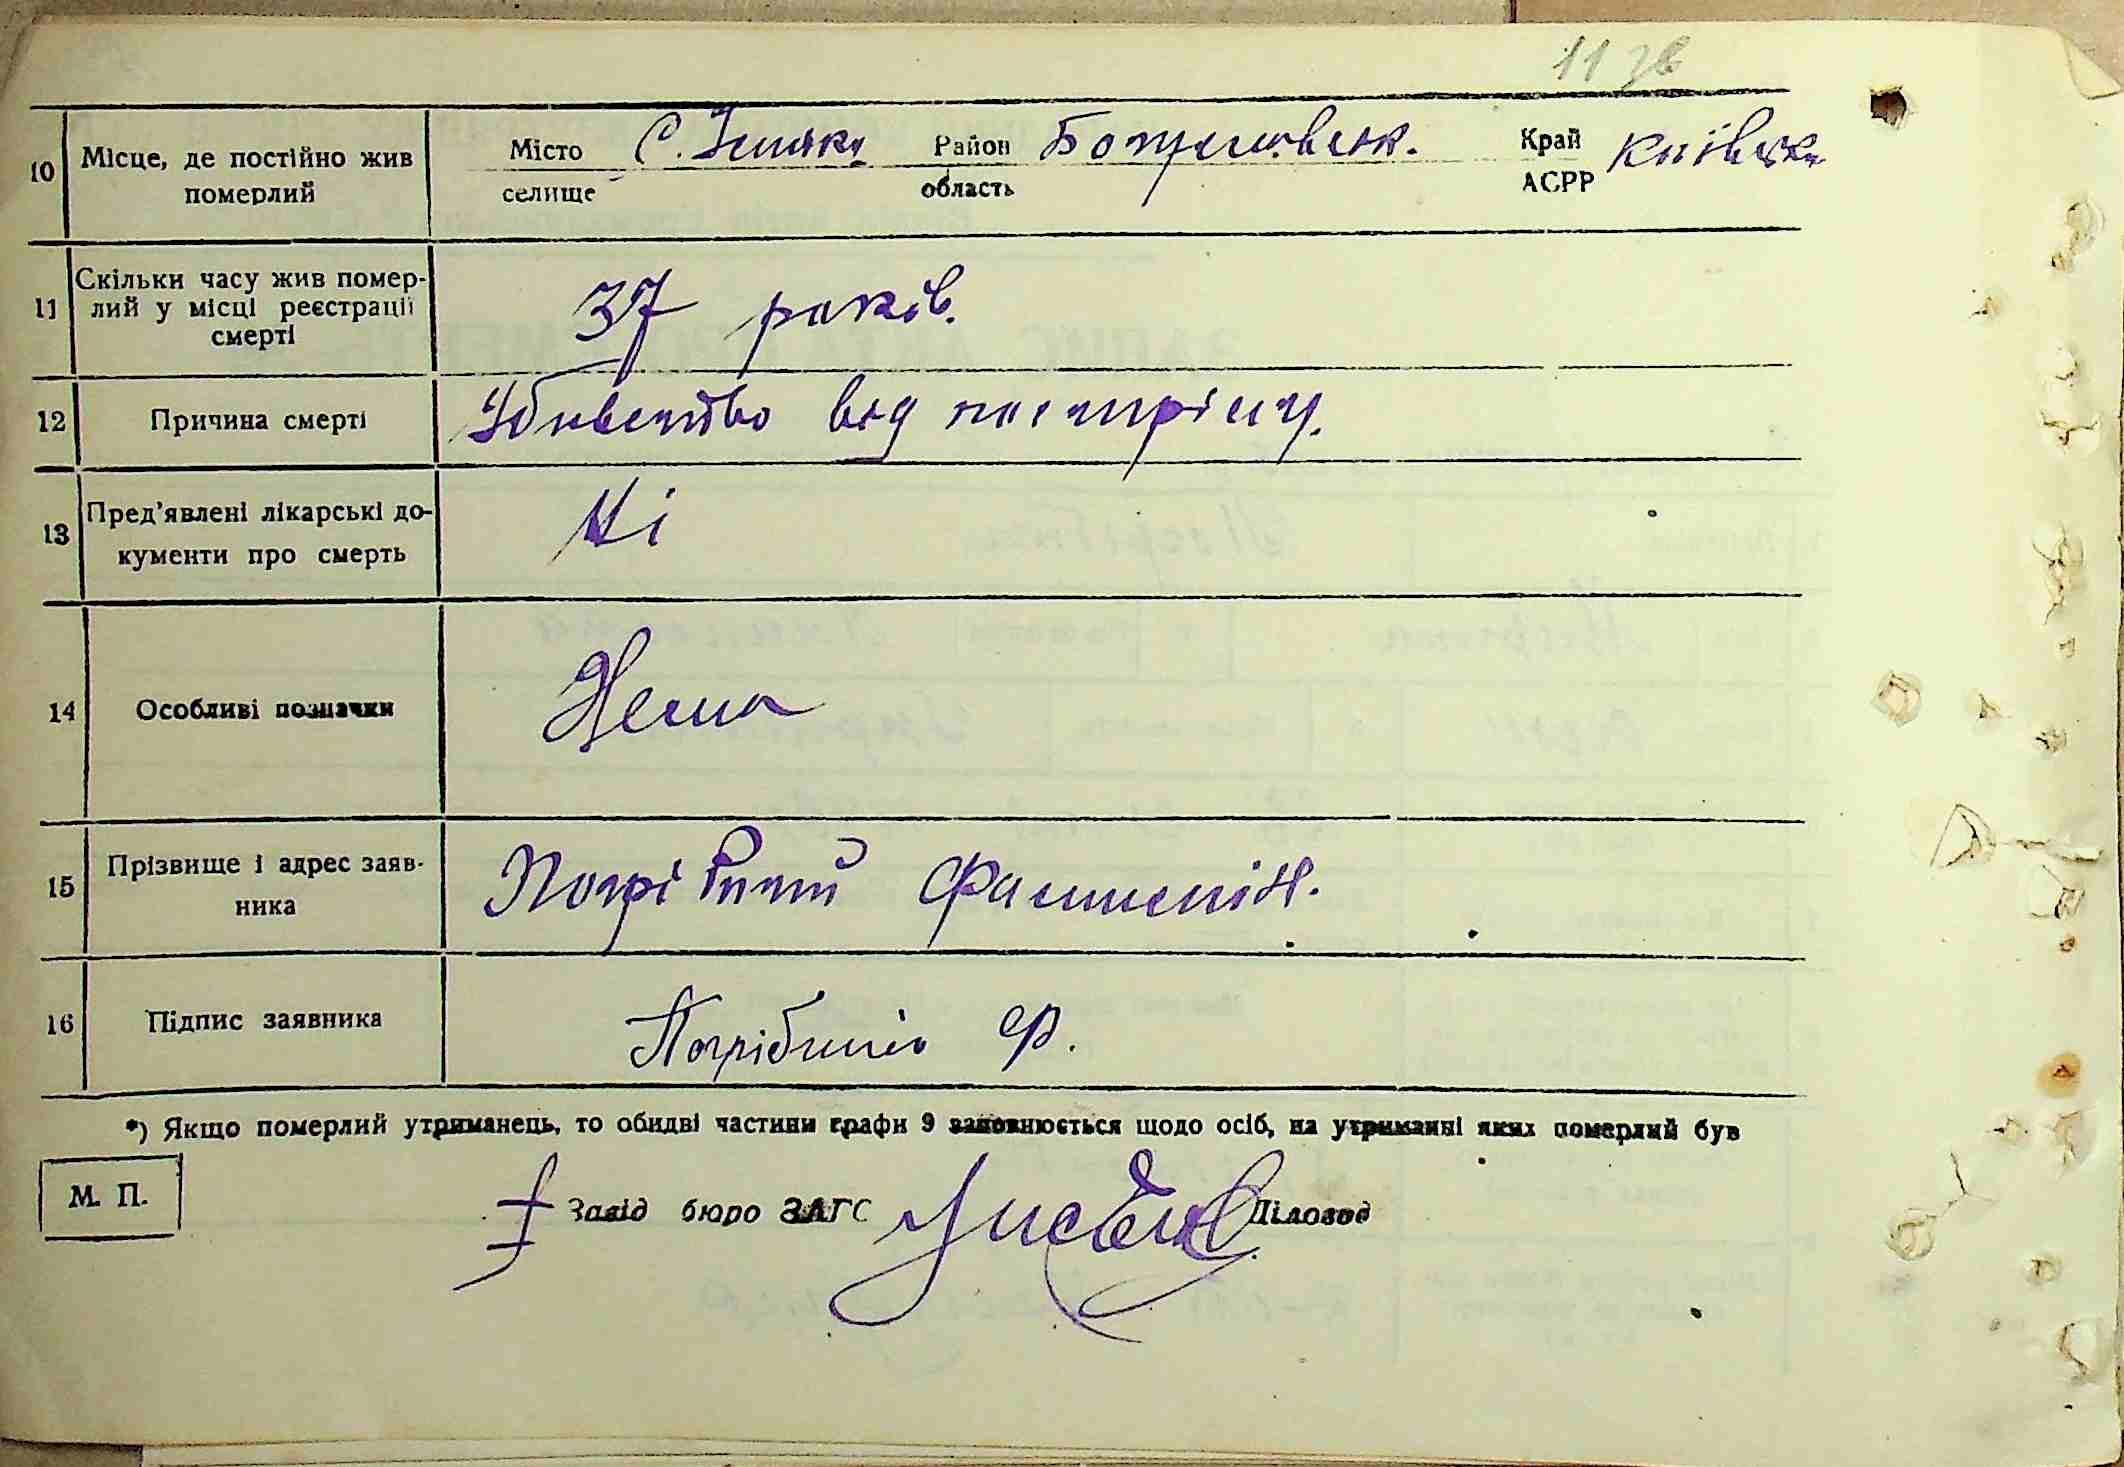 11 зв
10 Місце, де постійно жив померлий
Місто С. Район Край Київська
селище область АСРР
11 Скільки часу жив помер-
лий у місці реєстрації
смерті
37 років.
12 Причина смерті
Убивство від пострілу.
13 Пред'явлені лікарські до-
кументи про смерть
Ні
14 Особливі позначки
Нема
15 Прізвище і адрес заяв-
ника
Погрібний
16 Підпис заявника
Погрібний Ф.
*) Якщо померлий утриманець, то обидві частини графи 9 заповнюється щодо осіб, на утриманні яких померлий був
М. П.
Завід бюро ЗАГС Діловод